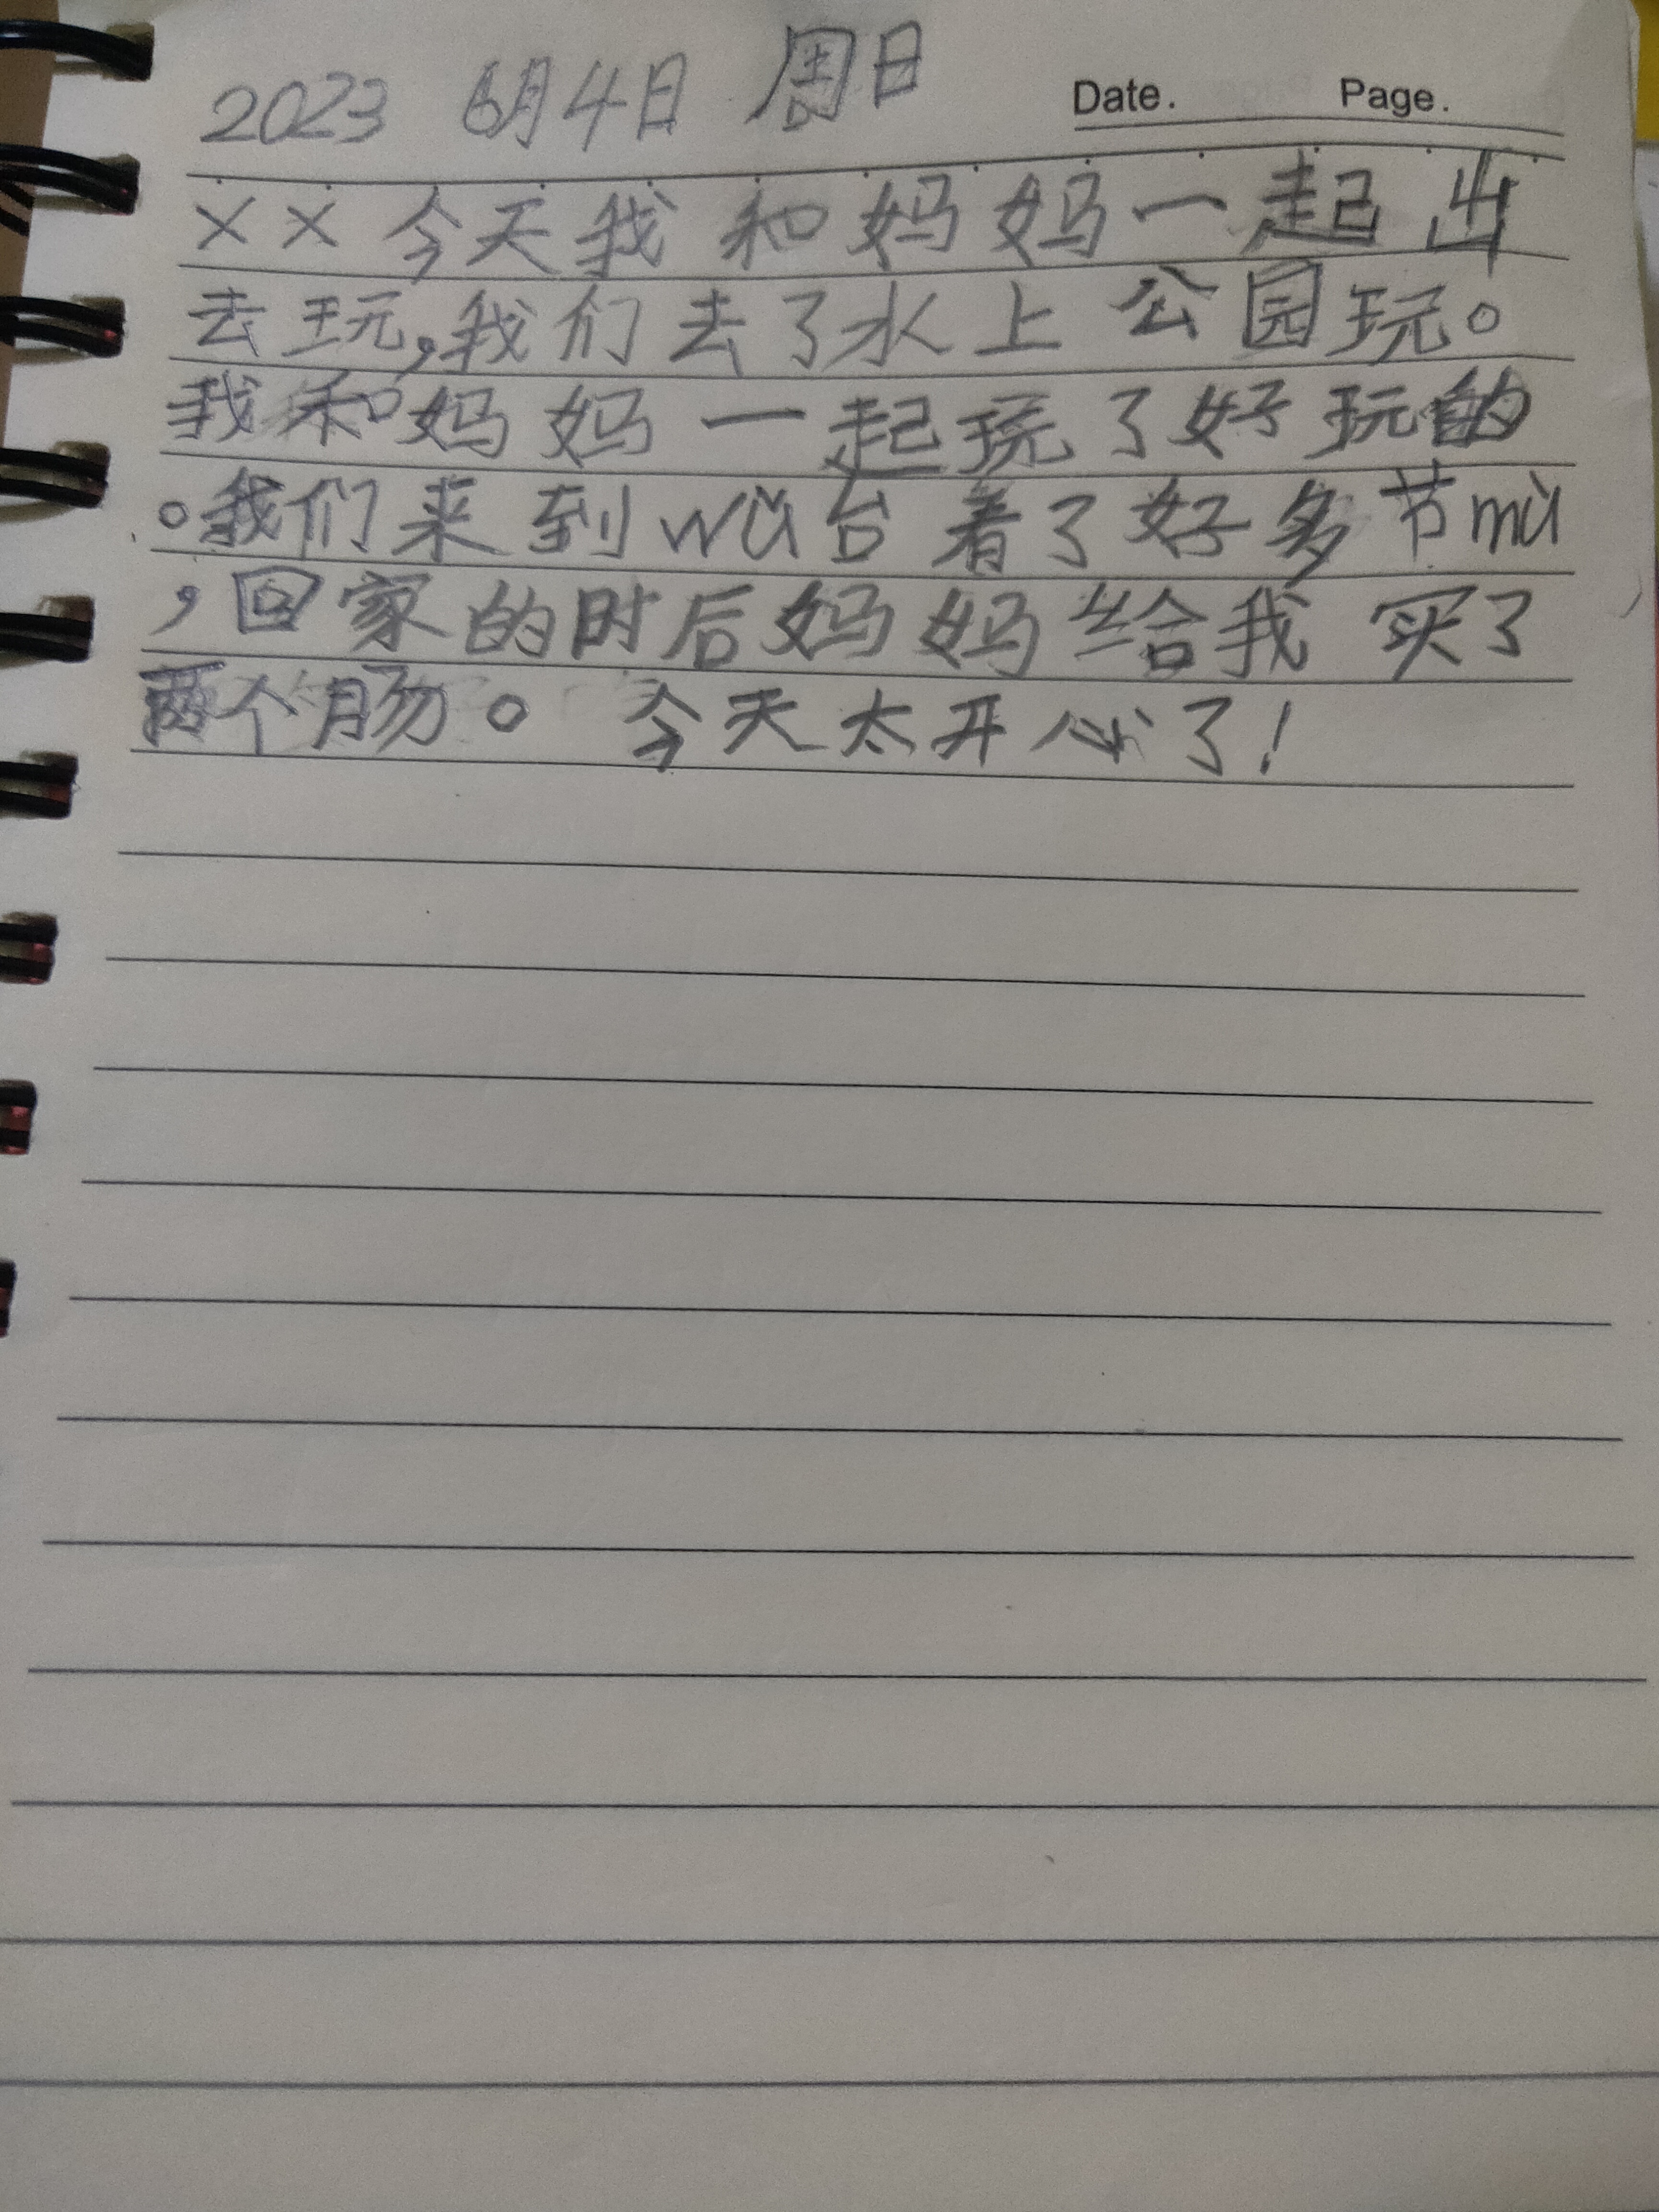 2023 6月4日 周日
Date. Page.
×× 今天我和妈妈一起出
去玩,我们去了水上公园玩。
我和妈妈一起玩了好玩的
。我们来到wǔ台着了好多节mù
,回家的时后妈妈给我买了
两个肠。 今天太开心了!